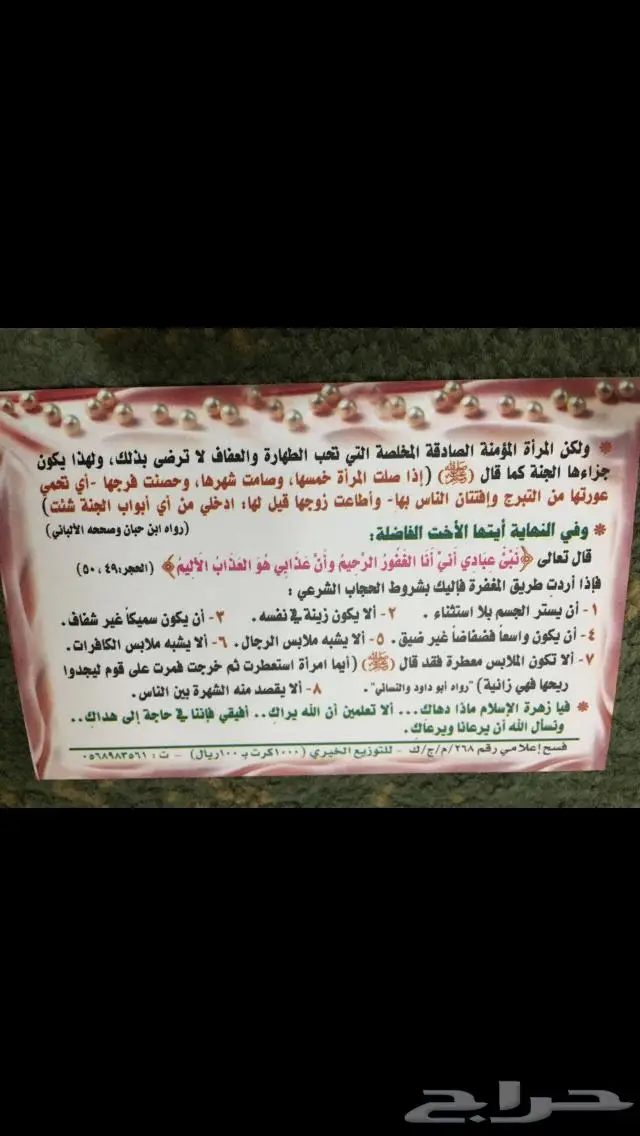 * ولكن المرأة المؤمنة الصادقة المخلصة التي تحب الطهارة والعفاف لا ترضى بذلك، ولهذا يكون
جزاءها الجنة كما قال (ﷺ) (إذا صلت المرأة خمسها، وصامت شهرها، وحصنت فرجها -أي تحمي
عورتها من التبرج وإفتتان الناس بها- وأطاعت زوجها قيل لها: ادخلي من أي أبواب الجنة شئت)
* وفي النهاية أيتها الأخت الفاضلة: (رواه ابن حبان وصححه الألباني)
قال تعالى ﴿نَبِّئْ عِبَادِي أَنِّي أَنَا الْغَفُورُ الرَّحِيمُ وَأَنَّ عَذَابِي هُوَ الْعَذَابُ الْأَلِيمُ﴾ (الحجر:٤٩، ٥٠)
فإذا أردتِ طريق المغفرة فإليك بشروط الحجاب الشرعي :
١- أن يستر الجسم بلا استثناء . ٢- ألا يكون زينة في نفسه . ٣- أن يكون سميكاً غير شفاف .
٤- أن يكون واسعاً فضفاضاً غير ضيق . ٥- ألا يشبه ملابس الرجال . ٦- ألا يشبه ملابس الكافرات .
٧- ألا تكون الملابس معطرة فقد قال (ﷺ) (أيما امرأة استعطرت ثم خرجت فمرت على قوم ليجدوا
ريحها فهي زانية) "رواه أبو داود والنسائي". ٨- ألا يقصد منه الشهرة بين الناس .
* فيا زهرة الإسلام ماذا دهاك... ألا تعلمين أن الله يراكِ.. أفيقي فإننا في حاجة إلى هداكِ..
ونسأل الله أن يرعانا ويرعاكِ.
فسح إعلامي رقم ٢٦٨/م/ج/ك - للتوزيع الخيري (١٠٠٠ كرت بـ ١٠٠ ريال) - ت : ٠٥٦٨٩٨٣٥٦١
حراج